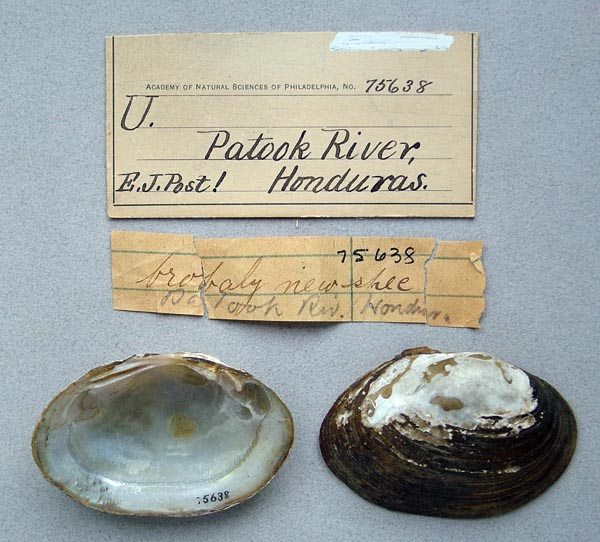 ACADEMY OF NATURAL SCIENCES OF PHILADELPHIA, NO. 75638
U.
Patook River,
E.J. Post! Honduras.
75638
brobaly new spec
Patook Riv. Hondur.
75638